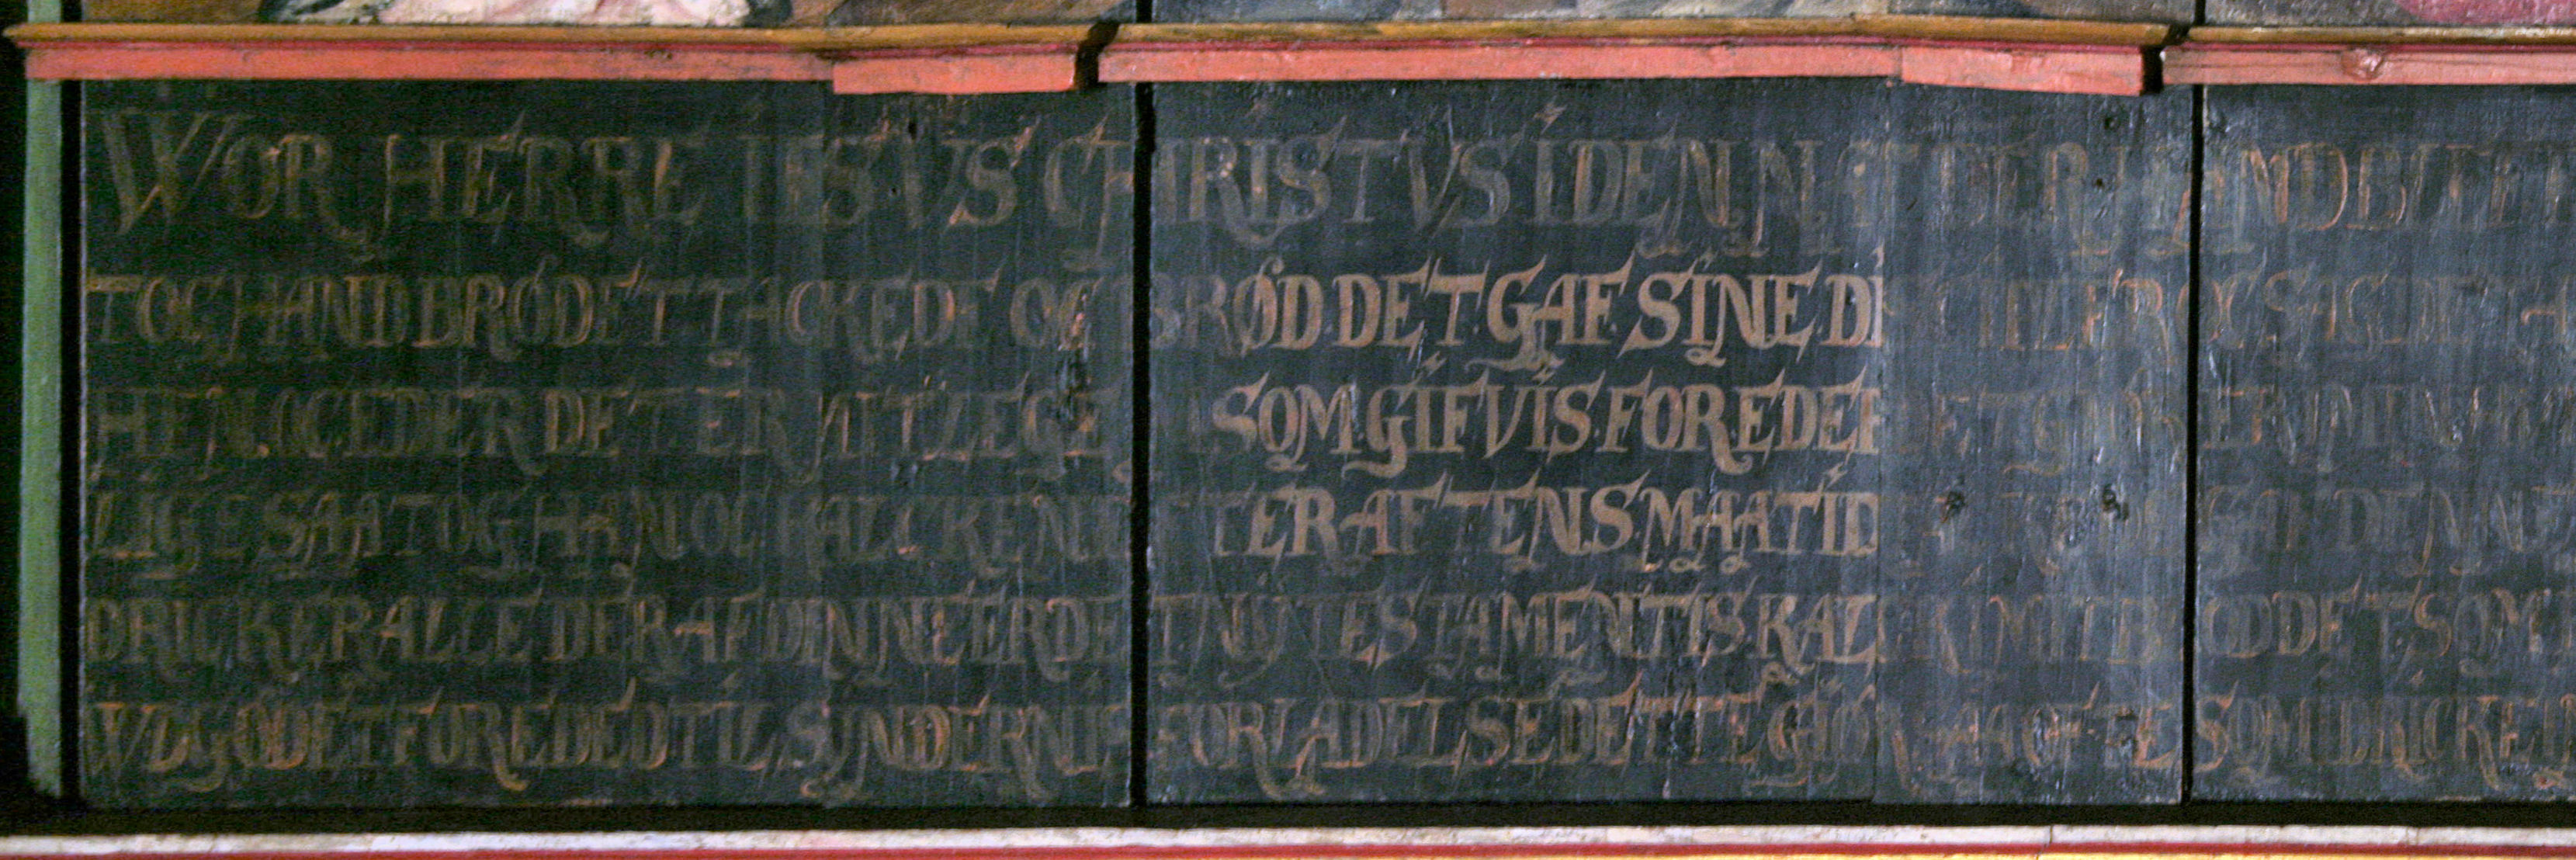 WOR HERRE IESVS CHRISTVS I DEN NAT DER HAND BLEF
TOG HAND BRØDET TACKEDE OC BRØD DET GAF SINE DI OC SAGDE TA
HEN OC EDER DET ER MIT LEGE SOM GIFVIS FOR EDER DET GIØRER I MIN
LIGE SAA TOG HAN OC KALCKEN EFTER AFTENS MAATID GAF DENNE
DRICKER ALLE DERAF DENNE ER DET NY TESTAMENTIS KALCK I MIT BLOD DET SOM
WDGØDET FOR EDER TIL SYNDERNIS FORLADELSE DETTE GIØR SAA OFTE SOM I DRICKE